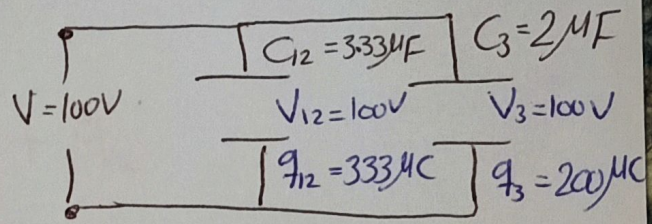 C₁₂ = 3.33μF
C₃ = 2μF
V = 100V
V₁₂ = 100V
V₃ = 100V
q₁₂ = 333μC
q₃ = 200μC